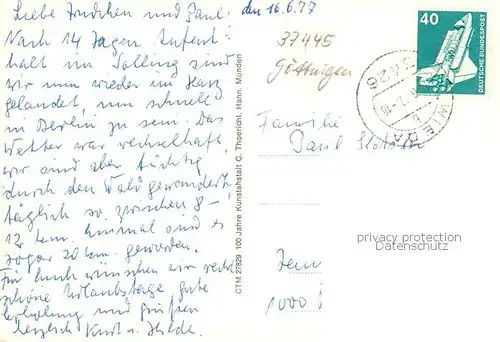 Liebe Trudchen und Paul!
den 16.6.77
Nach 14 Tagen Aufent-
halt im Solling sind
wir nun wieder im Harz
gelandet, um schnell
in Berlin zu sein. Das
Wetter war wechselhaft,
wir sind aber tüchtig
durch den Wald gewandert,
täglich so zwischen 8-
12 km. Einmal sind es
sogar 20 km. geworden.
Für Euch wünschen wir recht
schöne Urlaubstage gute
Erholung und grüssen
herzlich Kurt u. Hilde.
CTM 2/829 100 Jahre Kunstanstalt C. Thoericht, Hann. Münden
37445
Göttingen
40
DEUTSCHE BUNDESPOST
3426
WIEDA
Familie
Paul
privacy protection
Datenschutz
1000